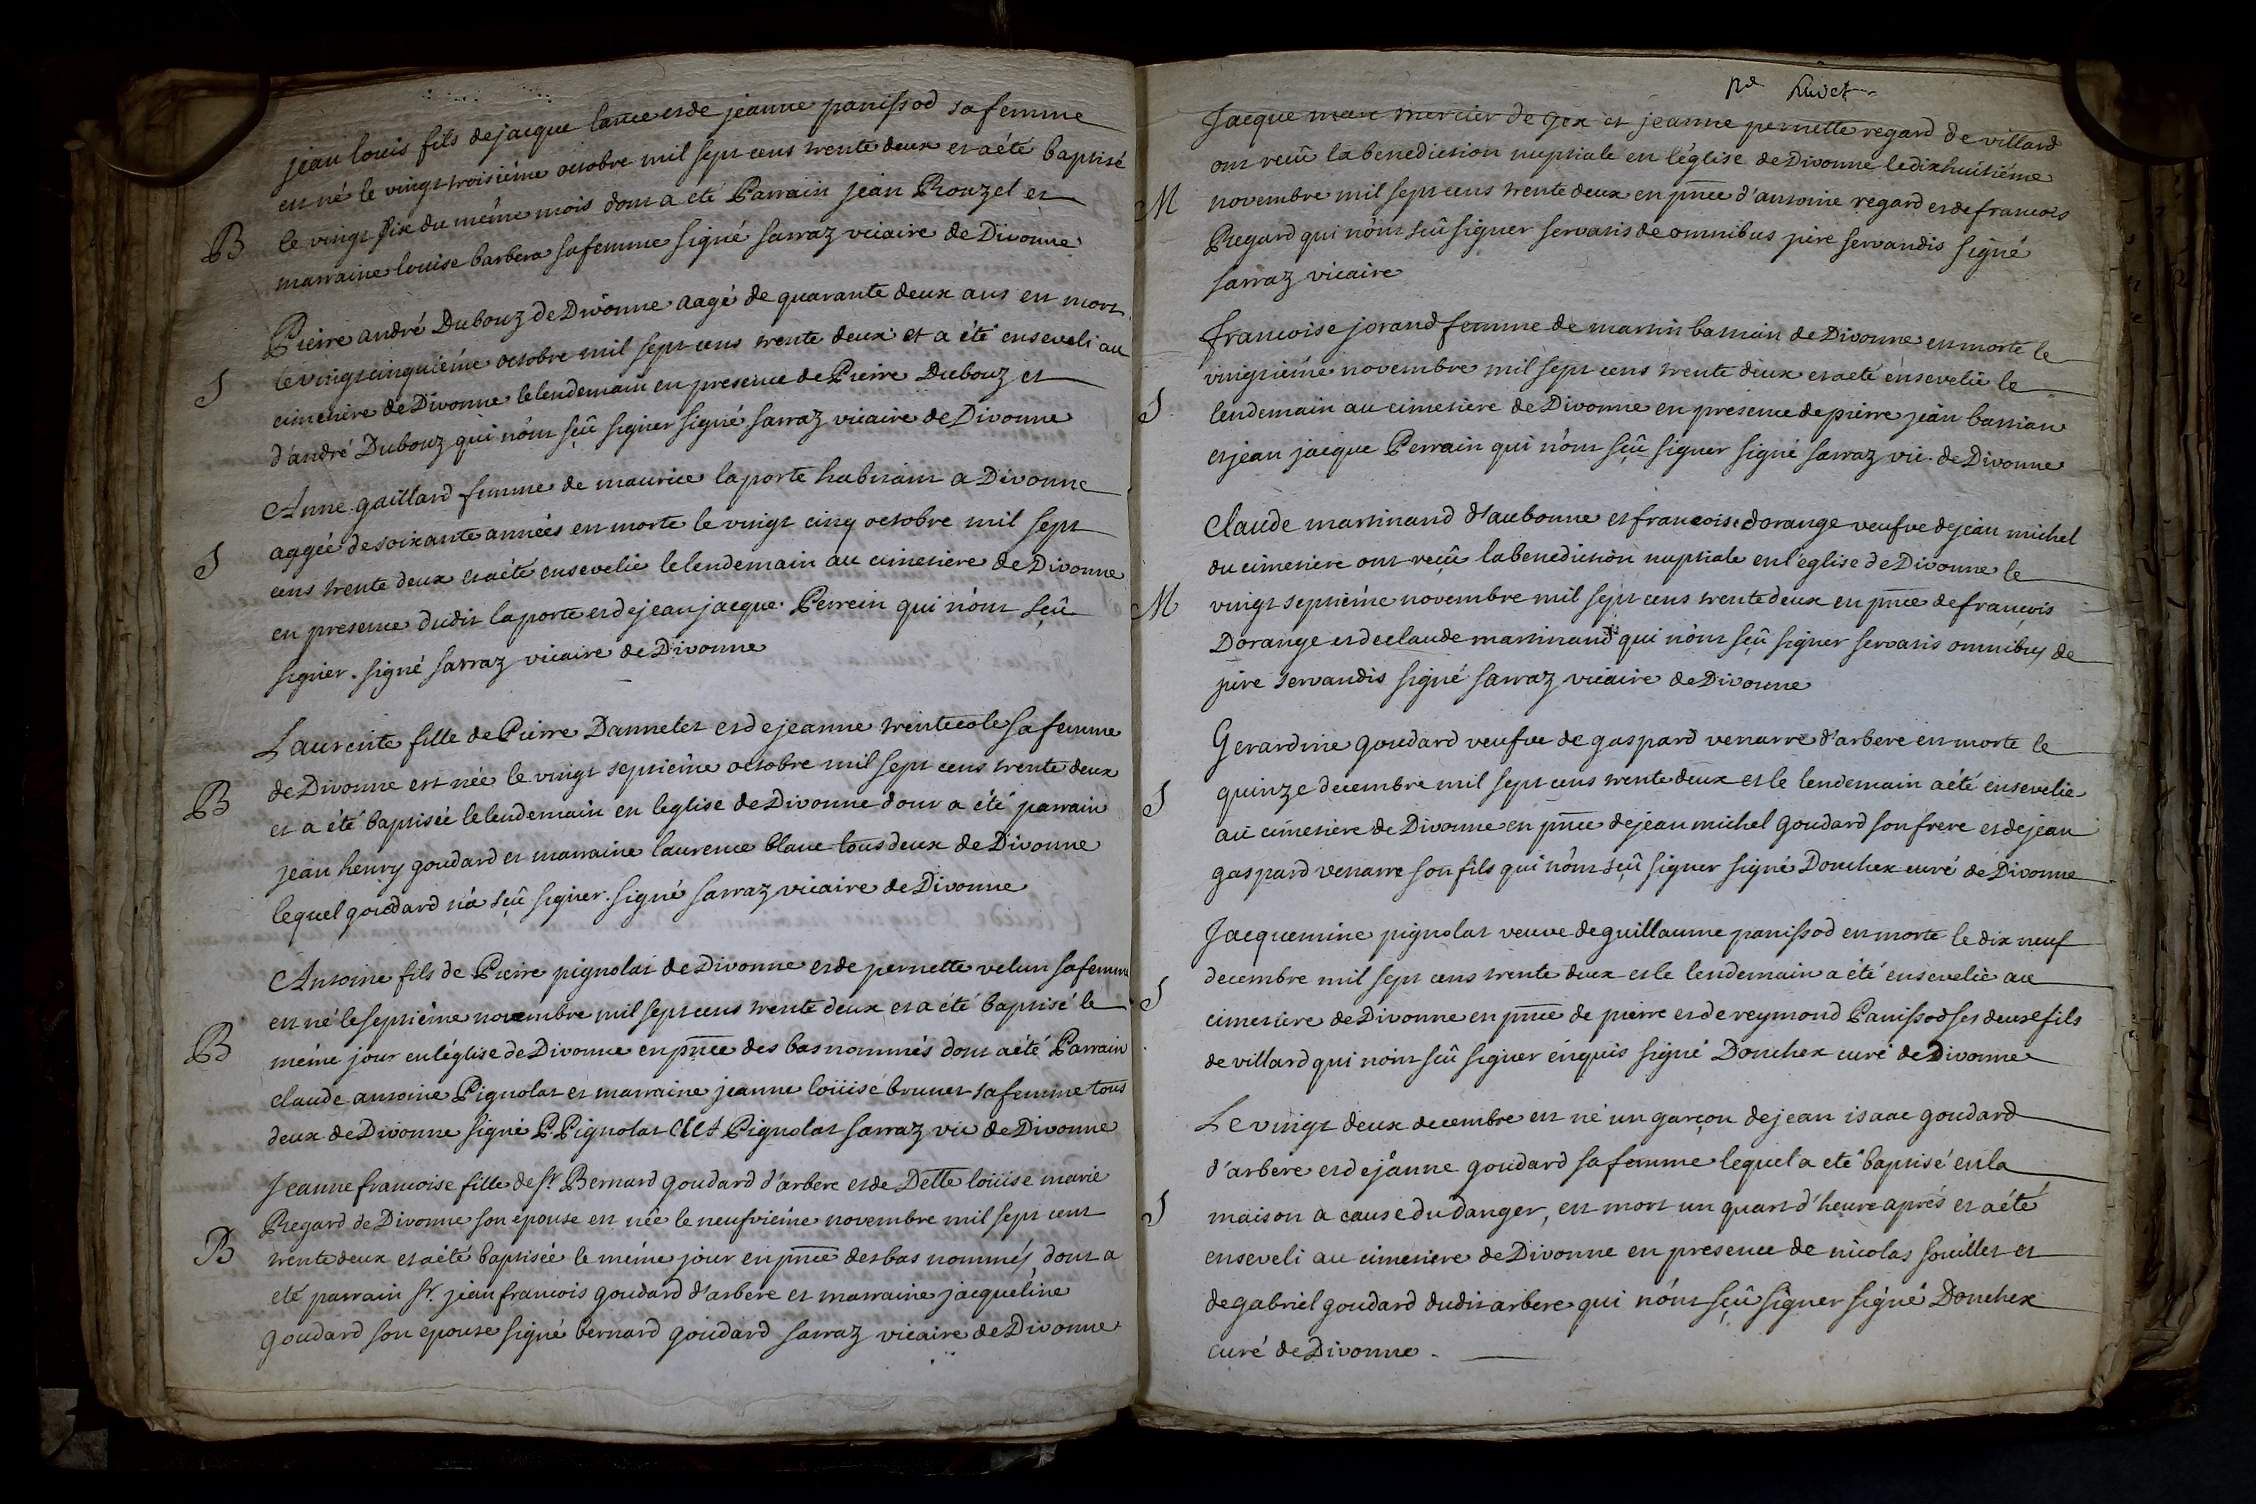 jean louis fils de jacque lance et de jeanne panissod sa femme
est né le vingt troisiéme octobre mil sept cens trente deux et a été baptisé
B le vingt six du même mois dont a été Parrain jean Rouzet et
marraine louise barbera sa femme signé sarraz vicaire de Divonne
Pierre andré Dubouz de Divonne aagé de quarante deux ans est mort
le vingt cinquiéme octobre mil sept cens trente deux et a été enseveli au
S cimetiere de Divonne le lendemain en presence de Pierre Dubouz et
d'andré Dubouz qui n'ont sçû signer signé sarraz vicaire de Divonne
Anne gaillard femme de maurice laporte habitant a Divonne
aagée de soixante années est morte le vingt cinq octobre mil sept
S cens trente deux et a été ensevelie le lendemain au cimetiere de Divonne
en presence dudit laporte et de jean jacque Perrein qui n'ont sçû
signer . signé sarraz vicaire de Divonne
Laurente fille de Pierre Dannelet et de jeanne trentecole sa femme
de Divonne est née le vingt septiéme octobre mil sept cens trente deux
B et a été baptisée le lendemain en leglise de Divonne dont a été parrain
jean henry goudard et marraine laurence blanc tous deux de Divonne
lequel goudard n'a sçû signer . signé sarraz vicaire de Divonne
Antoine fils de Pierre pignolat de Divonne et de pernette velun sa femme
est né le septiéme novembre mil sept cens trente deux et a été baptisé le
B même jour en l'église de Divonne en pñce des bas nommés dont a été Parrain
claude antoine Pignolat et marraine jeanne loüise brunet sa femme tous
deux de Divonne signé P Pignolat Pignolat sarraz vic de Divonne
Jeanne francoise fille de sr. Bernard goudard d'arbere et de Delle loüise marie
Regard de Divonne son epouse est née le neufvieme novembre mil sept cent
B trente deux et a été baptisée le même jour en pñce des bas nommés, dont a
eté parrain sr. jean francois goudard d'arbere et marraine jacqueline
goudard son epouse signé bernard goudard sarraz vicaire de Divonne
Jacque marc mercier de gex et jeanne pernette regard de villard
ont reçû la benediction nuptiale en l'église de Divonne le dix huitiéme
M novembre mil sept cens trente deux en pñce d'antoine regard et de francois
Regard qui n'ont sçû signer servatis de omnibus jure servandis signé
sarraz vicaire
francoise jorand femme de martin bastian de Divonne est morte le
vingtiéme novembre mil sept cens trente deux et a eté ensevelie le
S lendemain au cimetiere de Divonne en presence de pierre jean bastian
et jean jacque Perrain qui n'ont sçû signer signé sarraz vic. de Divonne
Claude martinand d'aubonne et francoise dorange veufve de jean michel
du cimetiere ont reçû la benediction nuptiale en l'église de Divonne le
M vingt septiéme novembre mil sept cens trente deux en pñce de françois
Dorange et de claude martinand qui n'ont sçû signer servatis omnibus de
jure servandis signé sarraz vicaire de Divonne
Gerardine goudard veufve de gaspard venarre d'arbere est morte le
S quinze decembre mil sept cens trente deux et le lendemain a été ensevelie
au cimetiere de Divonne en pñce de jean michel goudard son frere et de jean
gaspard venarre son fils qui n'ont sçû signer signé Douchex curé de Divonne
Jacquemine pignolat veuve de guillaume panissod est morte le dix neuf
S decembre mil sept cens trente deux et le lendemain a été ensevelie au
cimetiere de Divonne en pñce de pierre et de reymond Panissod ses deux fils
de villard qui n'ont sçû signer enquis signé Douchex curé de Divonne
Le vingt deux decembre est né un garçon de jean isaac goudard
d'arbere et de jeanne goudard sa femme lequel a eté baptisé en la
S maison a cause du danger, est mort un quart d'heure aprés et a été
enseveli au cimetiere de Divonne en presence de nicolas souillet et
de gabriel goudard dudit arbere qui n'ont sçû signer signé Douchex
curé de Divonne .